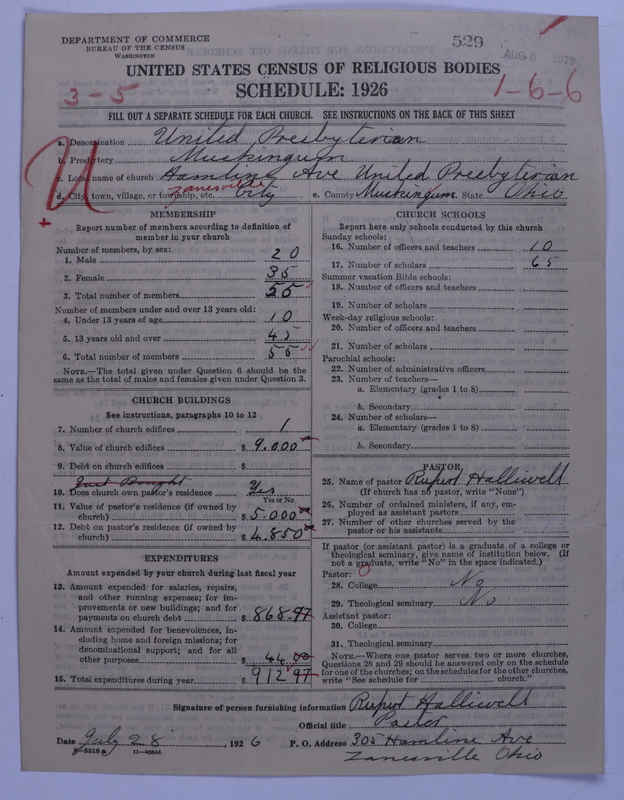 DEPARTMENT OF COMMERCE
BUREAU OF THE CENSUS
WASHINGTON
529
AUG 6 1926
UNITED STATES CENSUS OF RELIGIOUS BODIES
3-5
SCHEDULE: 1926
1-6-6
FILL OUT A SEPARATE SCHEDULE FOR EACH CHURCH. SEE INSTRUCTIONS ON THE BACK OF THIS SHEET
a. Denomination United Presbyterian
b. Presbytery Muskingum
c. Local name of church Hamline Ave United Presbyterian
d. City, town, village, or township, etc. Zanesville City e. County Muskingum State Ohio
MEMBERSHIP
Report number of members according to definition of
member in your church
Number of members, by sex:
1. Male 20
2. Female 35
3. Total number of members 55
Number of members under and over 13 years old:
4. Under 13 years of age 10
5. 13 years old and over 45
6. Total number of members 55
NOTE.—The total given under Question 6 should be
the same as the total of males and females given under Question 3.
CHURCH BUILDINGS
See instructions, paragraphs 10 to 12
7. Number of church edifices 1
8. Value of church edifices $ 9.000
9. Debt on church edifices $
Just Bought
10. Does church own pastor's residence Yes
Yes or No
11. Value of pastor's residence (if owned by
church) $ 5.000
12. Debt on pastor's residence (if owned by
church) $ 4.850
EXPENDITURES
Amount expended by your church during last fiscal year
13. Amount expended for salaries, repairs,
and other running expenses; for im-
provements or new buildings; and for
payments on church debt $ 868.97
14. Amount expended for benevolences, in-
cluding home and foreign missions; for
denominational support; and for all
other purposes $ 44.00
15. Total expenditures during year $ 912 97
CHURCH SCHOOLS
Report here only schools conducted by this church
Sunday schools:
16. Number of officers and teachers 10
17. Number of scholars 65
Summer vacation Bible schools:
18. Number of officers and teachers
19. Number of scholars
Week-day religious schools:
20. Number of officers and teachers
21. Number of scholars
Parochial schools:
22. Number of administrative officers
23. Number of teachers—
a. Elementary (grades 1 to 8)
b. Secondary
24. Number of scholars—
a. Elementary (grades 1 to 8)
b. Secondary
PASTOR
25. Name of pastor Rupert Halliwell
(If church has no pastor, write "None")
26. Number of ordained ministers, if any, em-
ployed as assistant pastors
27. Number of other churches served by the
pastor or his assistants
If pastor (or assistant pastor) is a graduate of a college or
theological seminary, give name of institution below. (If
not a graduate, write "No" in the space indicated.)
Pastor: 0
28. College No
29. Theological seminary No
Assistant pastor:
30. College
31. Theological seminary
NOTE.—Where one pastor serves two or more churches,
Questions 28 and 29 should be answered only on the schedule
for one of the churches; on the schedules for the other churches,
write "See schedule for church."
Signature of person furnishing information Rupert Halliwell
Official title Pastor
Date July 28, 1926 P. O. Address 305 Hamline Ave
Zanesville Ohio